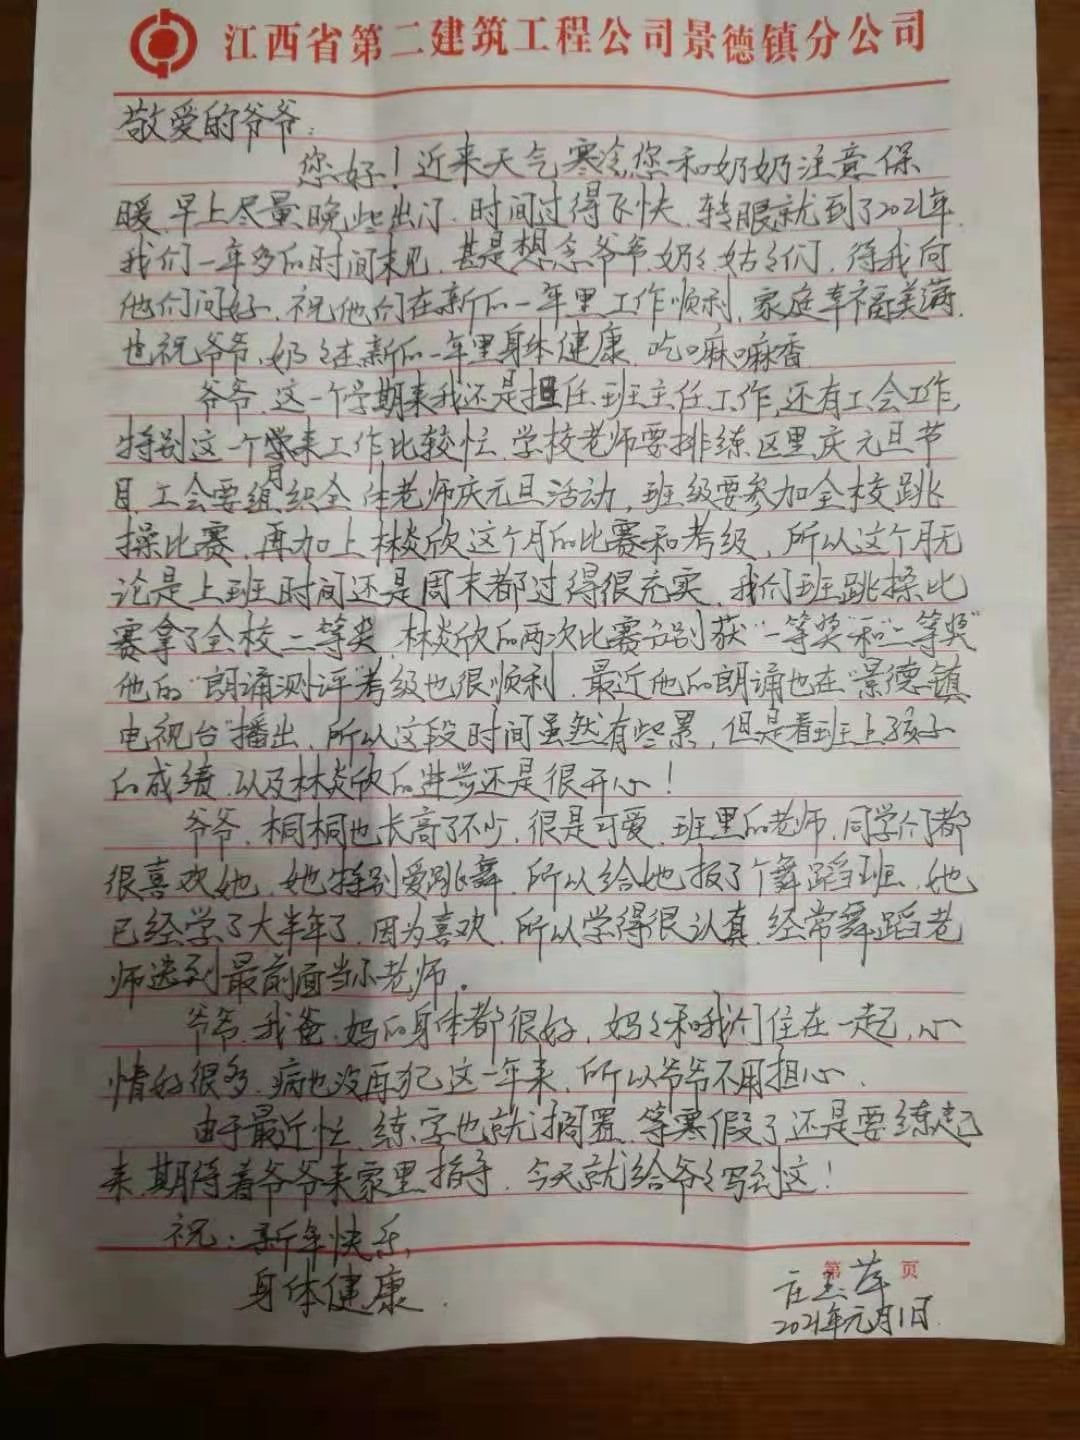 江西省第二建筑工程公司景德镇分公司
敬爱的爷爷:
您好！近来天气寒冷,您和奶奶注意保
暖,早上尽量晚些出门.时间过得飞快,转眼就到了2021年.
我们一年多的时间未见,甚是想念爷爷.奶奶姑姑们,待我向
他们问好,祝他们在新的一年里工作顺利,家庭幸福美满.
也祝爷爷、奶奶在新的一年里身体健康,吃嘛嘛香.
爷爷,这一个学期来我还是担任班主任工作,还有工会工作,
特别这一个月来工作比较忙,学校老师要排练区里庆元旦节
目,工会要组织全体老师庆元旦活动,班级要参加全校跳
操比赛,再加上林炎欣这个月的比赛和考级,所以这个月无
论是上班时间还是周末都过得很充实,我们班跳操比
赛拿了全校二等奖,林炎欣的两次比赛分别获"一等奖"和"二等奖"
他的"朗诵测评"考级也很顺利,最近他的朗诵也在"景德镇
电视台"播出,所以这段时间虽然有些累,但是看班上孩子
的成绩,以及林炎欣的进步还是很开心！
爷爷,桐桐也长高了不少,很是可爱,班里的老师,同学们都
很喜欢她,她特别爱跳舞,所以给她报了个舞蹈班,她
已经学了大半年了,因为喜欢,所以学得很认真,经常舞蹈老
师选到最前面当小老师。
爷爷,我爸、妈的身体都很好,妈妈和我们住在一起,心
情好很多,病也没再犯这一年来,所以爷爷不用担心.
由于最近忙,练字也就搁置,等寒假了还是要练起
来,期待着爷爷来家里指导.今天就给爷爷写到这！
祝:新年快乐,
身体健康.
第 页
庄 萍
2021年元月1日